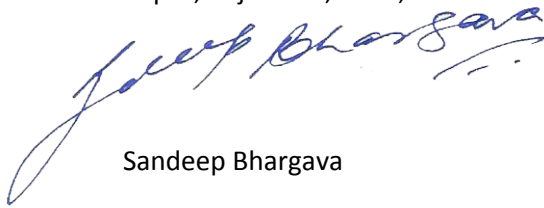 Sandeep Bhargava
Sandeep Bhargava